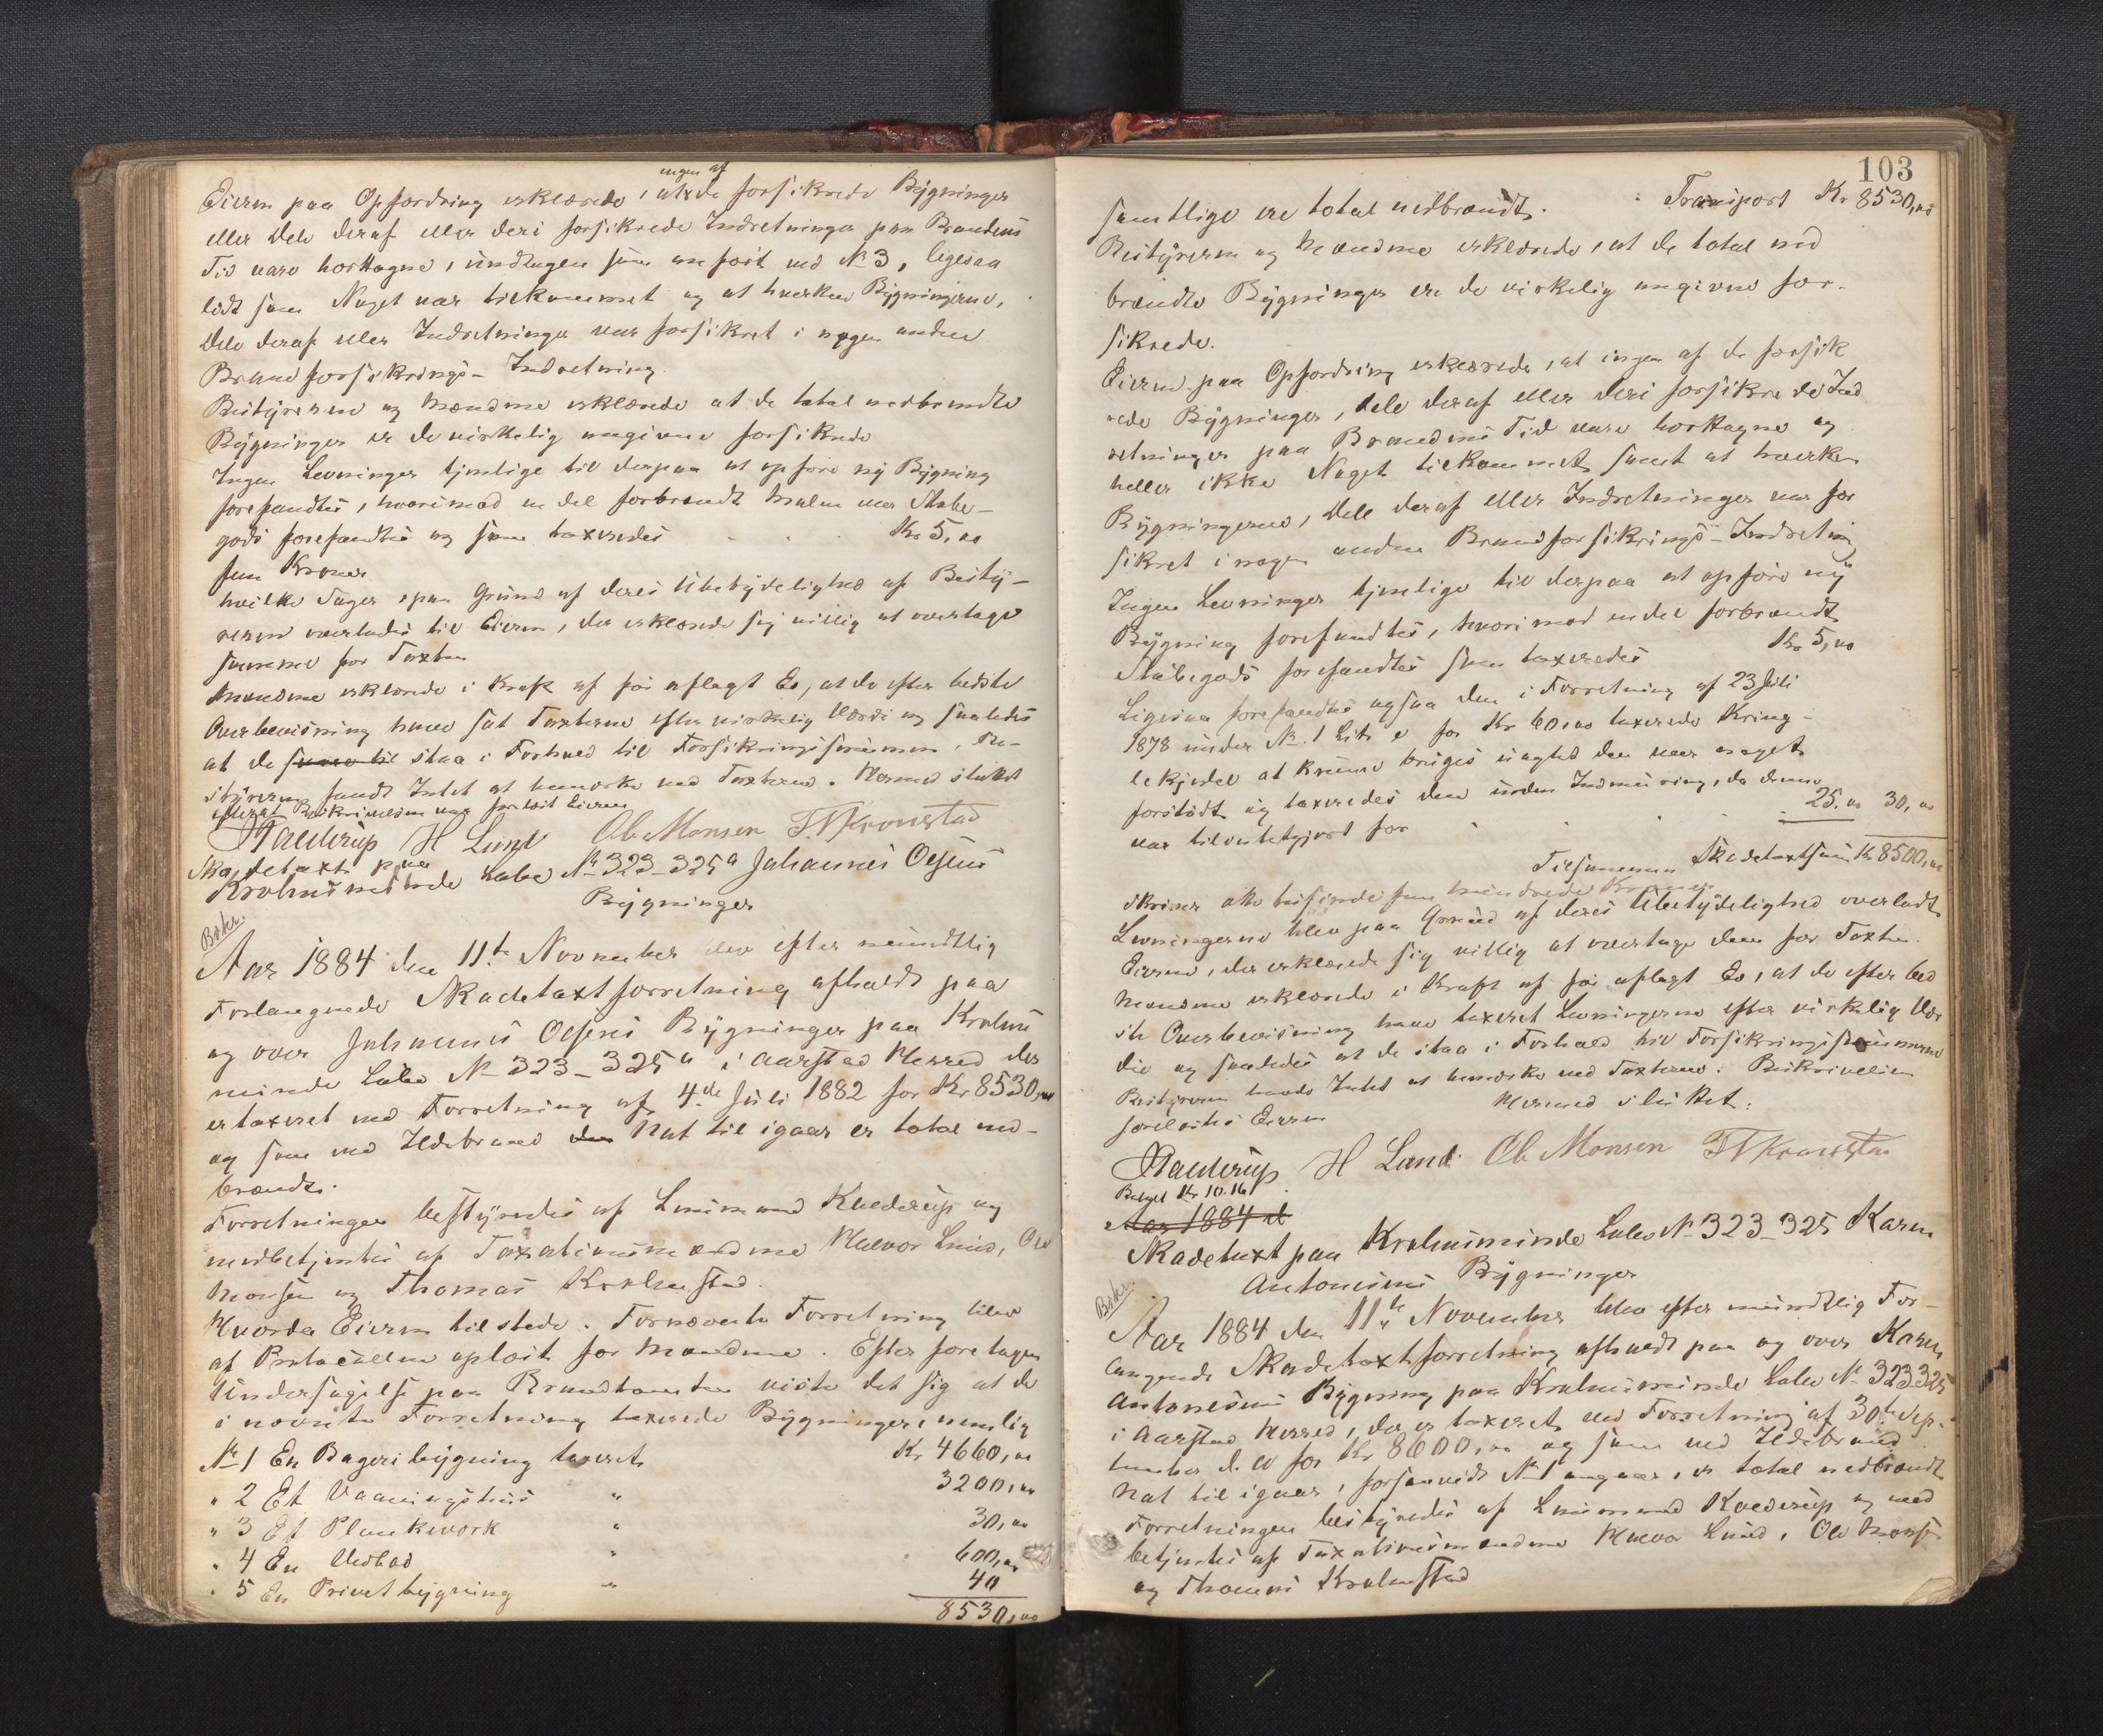 ingen af
Eieren paa Opfordring erklærede, at de forsikrede Bygninger
eller Dele deraf eller deri forsikrede Indretninger paa Brandens
Tid vare borttagne, undtagen som anført ved No 3, ligesaa
lidt som Noget var tilkommet og at hverken Bygningerne,
Dele deraf eller Indretninger var forsikret i nogen anden
Brandforsikrings-Indretning.
Bestyreren og Mændene erklærede at de total nedbrændte
Bygninger er de virkelig angivne forsikrede
Ingen Levninger tjenlige til derpaa at opføre ny Bygning
forefandtes, hvorimod en del forbrændt Malm Støbe-
gods forefandtes og som taxeredes Kr 5,00
fem Kroner
hvilke Sager, paa Grund af deres Ubetydelighed af Besty-
reren overlodes til Eieren, der erklærede sig villig at overtage
samme for Taxten
Mændene erklærede i Kraft af før aflagt Ed, at de efter bedste
Overbevisning have sat Taxterne efter virkelig Værdi og saaledes
at de staa i Forhold til Forsikringssummen. Be-
styreren fandt Intet at bemærke ved Taxterne. Hermed sluttet
efterat Beskrivelsen var forelæst Eieren
Kaldrup H Lund Ole Monsen T Kronstad
Skadetaxt paa
Krohnsminde Labo No 323-325a Johannes Olsens
Bygninger
Beskr.
Aar 1884 den 11te November blev efter mundtlig
Forlangende Skadetaxtforretning afholdt paa
og over Johannes Olsens Bygninger paa Krohns
minde Labo No 323-325a i Aarstad Herred der
er taxeret ved Forretning af 4de Juli 1882 for Kr 8530,00
og som ved Ildebrand Nat til igaar er total ned-
brændt.
Forretningen bestyredes af Lensmand Kalderup og
medbetjentes af Taxationsmændene Halvor Lund, Ole
Monsen og Thomas Krohnstad.
Hvorda Eieren tilstede. Fornævnte Forretning blev
af Protocollen oplæst for Mændene. Efter foretagen
Undersøgelse paa Brandtomten viste det sig at de
i nævnte Forretning taxerede Bygninger, nemlig
No 1 En Bageribygning taxeret Kr 4660,00
" 2 Et Vaaningshus " 3200,00
" 3 Et Plankeværk " 30,00
" 4 En Vedbod " 600,00
" 5 En Privetbygning " 40
8530,00
103
Transport Kr 8530,00
samtlige ere total nedbrændt.
Bestyreren og Mændene erklærede, at de total ned
brændte Bygninger ere de virkelig angivne for-
sikrede.
Eieren paa Opfordring erklærede, at ingen af de forsik
rede Bygninger, dele deraf eller deri forsikrede Ind
retninger paa Brandens Tid vare borttagne og
heller ikke Noget tilkommet samt at hverken
Bygningerne, Dele deraf eller Indretninger var for
sikret i nogen anden Brandforsikrings-Indretning
Ingen Levninger tjenlige til derpaa at opføre ny
Bygning forefandtes, hvorimod en del forbrændt
Støbegods forefandtes som taxeredes Kr 5,00
Ligesaa forefandtes ogsaa den i Forretning af 23 Juli
1878 under No. 1 Litr e for Kr 60,00 taxerede Kring-
lekjedel at kunne bruges uagtet den var noget
forstødt og taxeredes den uden Indmuring, da denne
var tilintetgjort for 25,00 30,00
Tilsammen Skadetaxtsum Kr 8500,00
skriver otte tusinde fem hundrede Kroner
Levningerne blev paa Grund af deres Ubetydelighed overladt
Eieren, der erklærede sig villig at overtage dem for Taxten.
Mændene erklærede i Kraft af før aflagt Ed, at de efter bed
ste Overbevisning have taxeret Levningerne efter virkelig Vær
die og saaledes at de staa i Forhold til Forsikringssummerne
Bestyreren havde Intet at bemærke ved Taxterne. Beskrivelsen
forelæstes Eieren Hermed sluttet.
Kaldrup H Lund Ole Monsen T Kronstad
Betalt Kr 10.16
Aar 1884 d
Skadetaxt paa Krohnsminde Labo No 323-325 Karen
Antonsens Bygninger
Beskr.
Aar 1884 den 11te November blev efter mundtlig For-
langende Skadetaxtforretning afholdt paa og over Karen
Antonsens Bygning paa Krohnsminde Labo No 323 325
i Aarstad Herred, der er taxeret ved Forretning af 30te Sep-
tember d. A for Kr 8600,00 og som ved Ildebrand
Nat til igaar, forsaavidt No 1 angaar, er total nedbrændt
Forretningen bestyredes af Lensmand Kalderup og med
betjentes af Taxationsmændene Halvor Lund, Ole Monsen
og Thomas Krohnstad